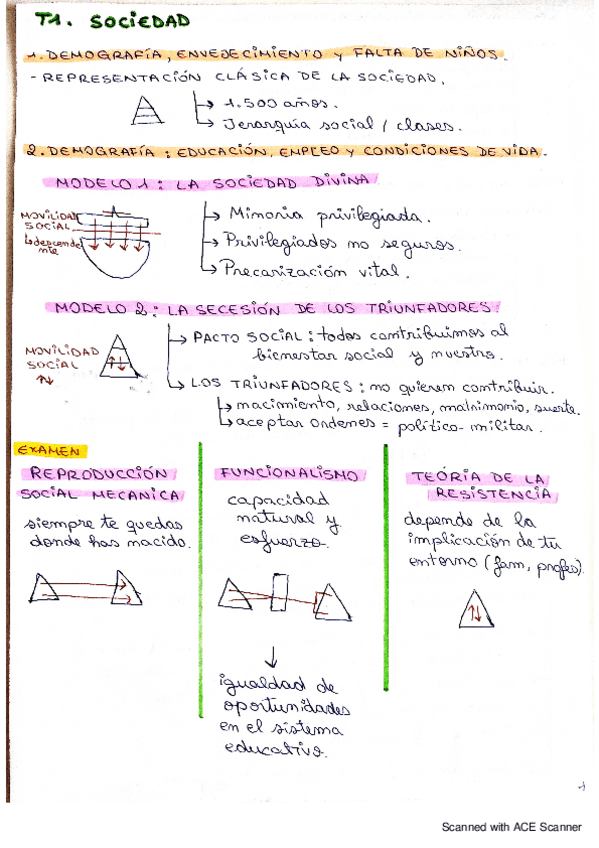 T1. SOCIEDAD
1. DEMOGRAFÍA, ENVEJECIMIENTO Y FALTA DE NIÑOS.
- REPRESENTACIÓN CLÁSICA DE LA SOCIEDAD.
1.500 años.
Jerarquía social / clases.
2. DEMOGRAFÍA: EDUCACIÓN, EMPLEO Y CONDICIONES DE VIDA.
MODELO 1: LA SOCIEDAD DIVINA
MOVILIDAD
SOCIAL
descende
nte
Minoria privilegiada.
Privilegiados no seguros.
Precarización vital.
MODELO 2: LA SECESIÓN DE LOS TRIUNFADORES.
MOVILIDAD
SOCIAL
PACTO SOCIAL: todos contribuimos al
bienestar social y nuestro.
LOS TRIUNFADORES: no quieren contribuir.
nacimiento, relaciones, matrimonio, suerte.
aceptar ordenes = político-militar.
EXAMEN
REPRODUCCIÓN
SOCIAL MECANICA
siempre te quedas
donde has nacido.
FUNCIONALISMO
capacidad
natural y
esfuerzo.
igualdad de
oportunidades
en el sistema
educativo.
TEORÍA DE LA
RESISTENCIA
depende de la
implicación de tu
entorno (fam, profes).
1
Scanned with ACE Scanner